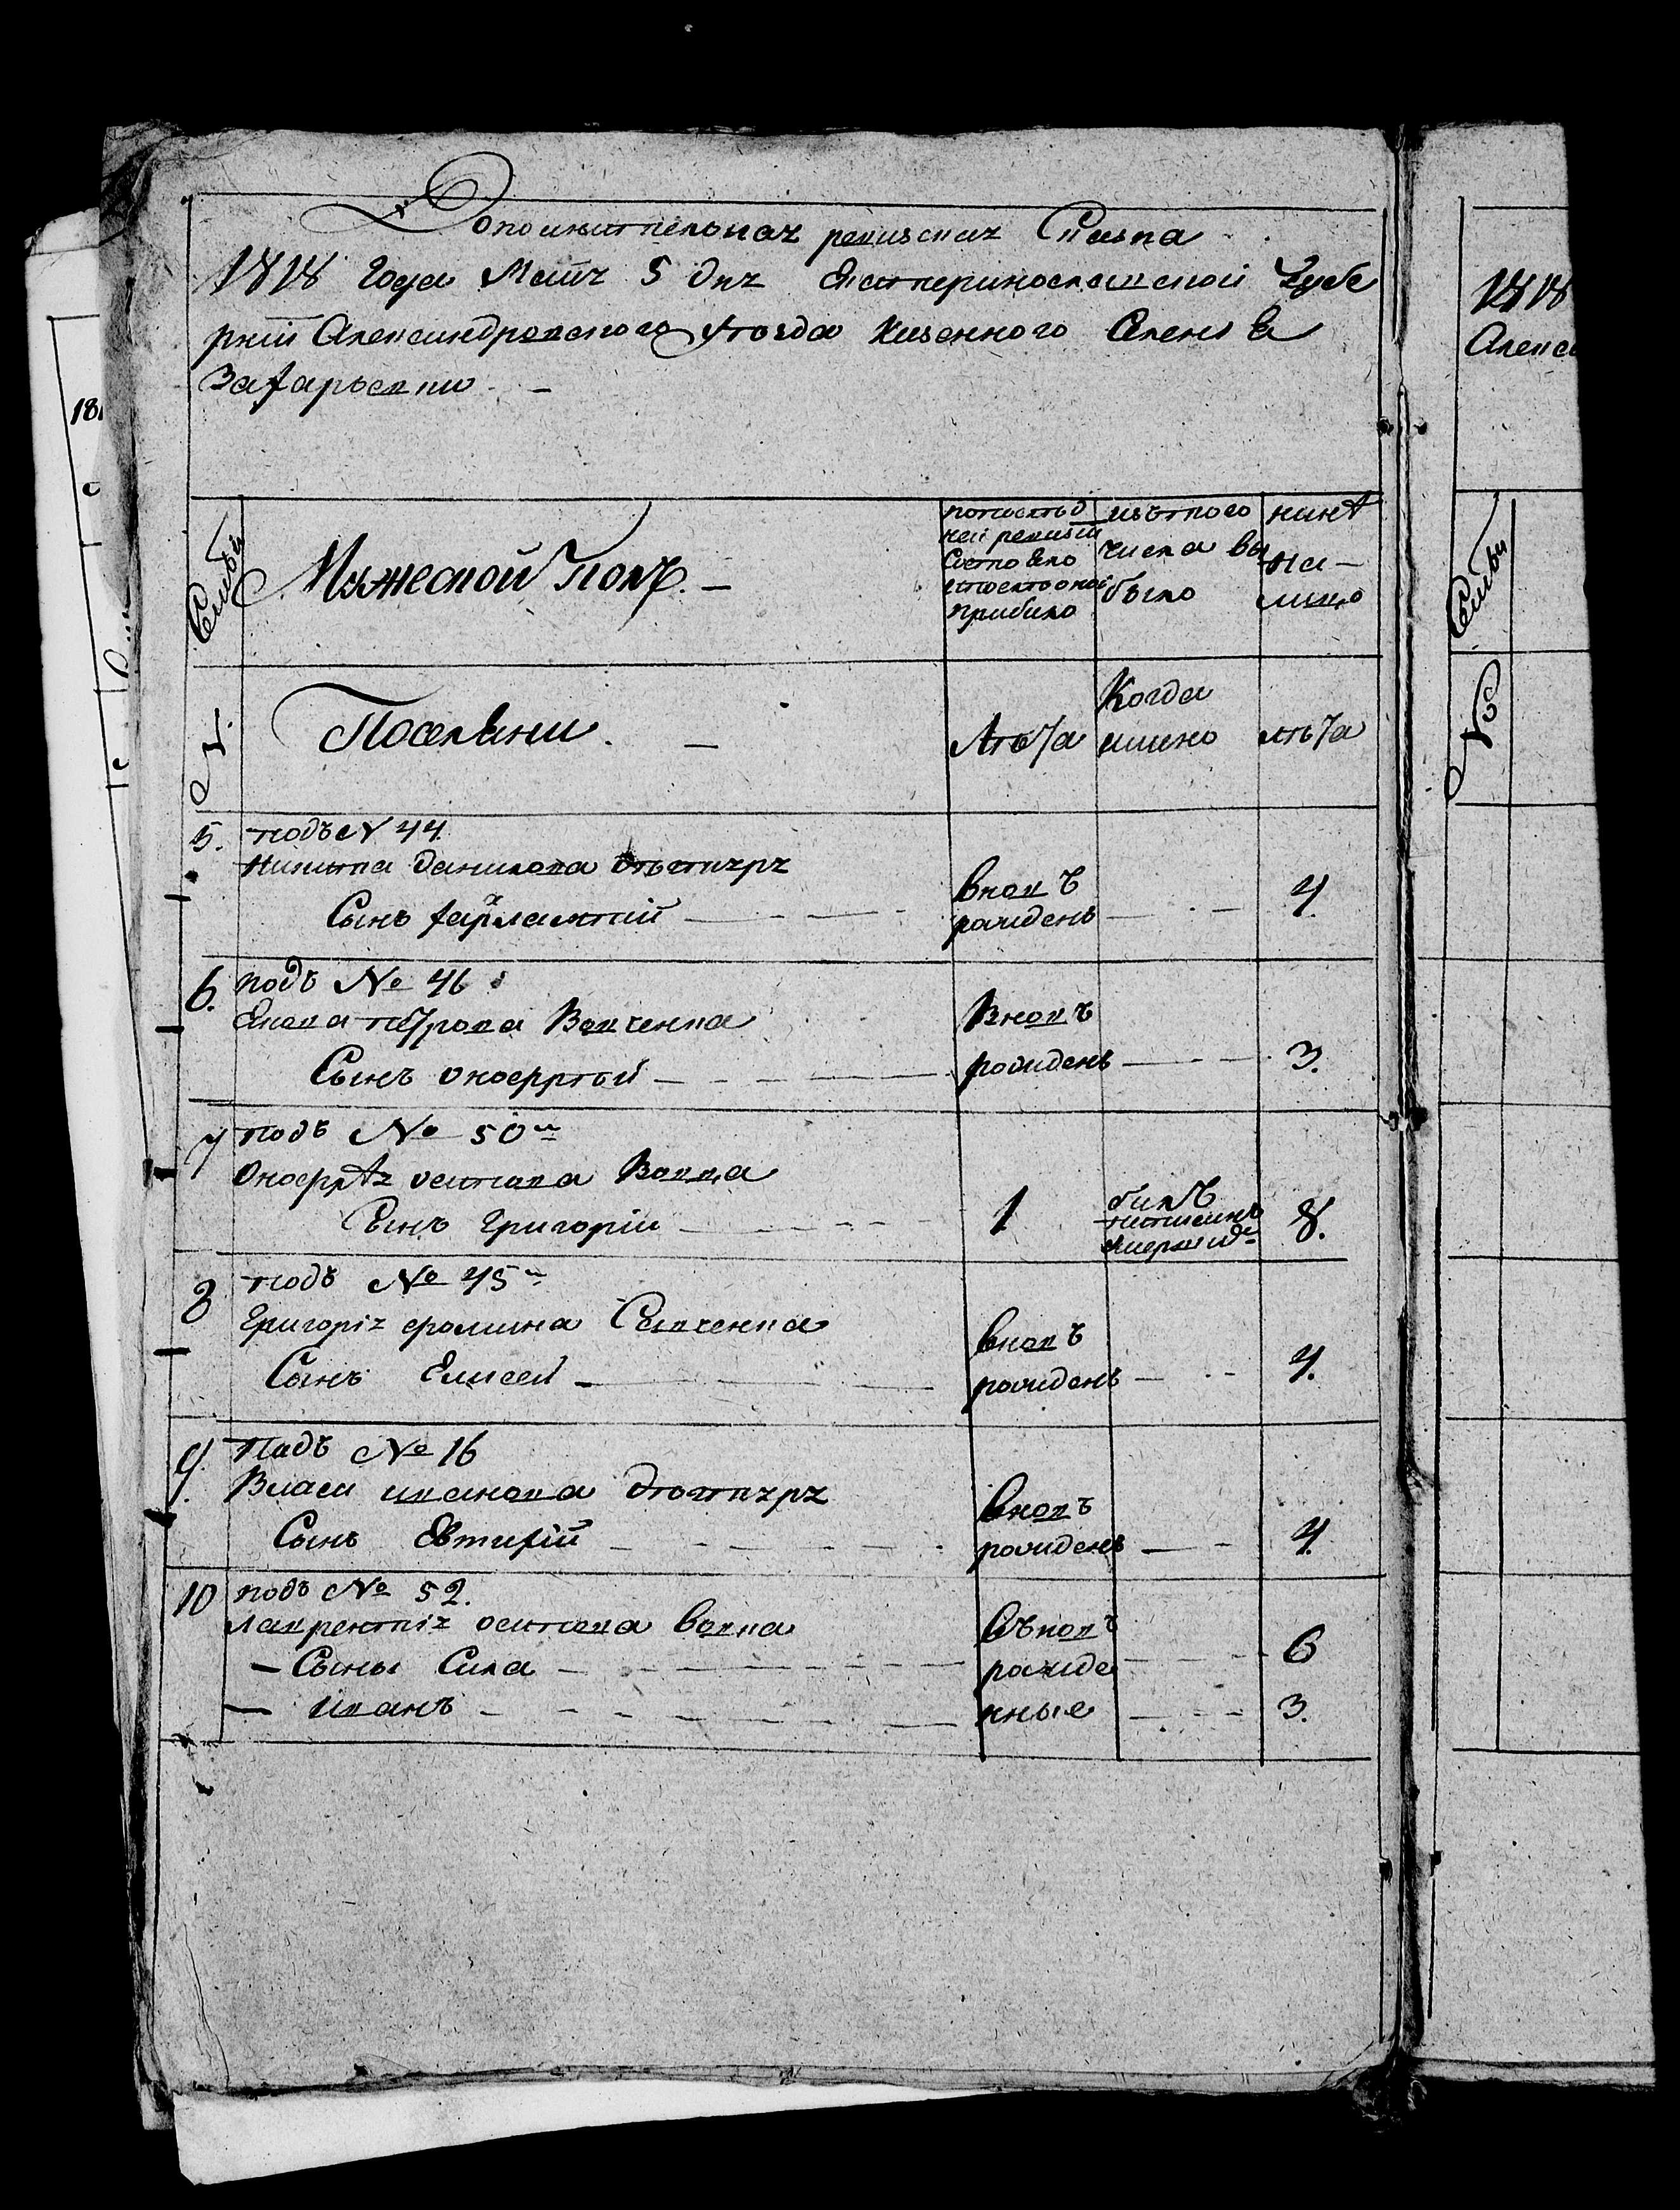 Дополнительная ревизская Сказка
1818 Года Маия 5 дня Екатеринославской Губе
рнии Александровского уезда Казенного Селения
Захарьевки
Семьи
Мужеской Полъ
по последней ревизии состояло и после оной прибыло
изъ того числа выбыло
ныне на лицо
№
Поселяни
Лета
Когда имено
лета
5. подъ № 44
Никита Данилова Дегтяря
Сынъ Харлампий
вновъ рожденъ
4.
6. подъ № 46
Якова Петрова Вовченка
Сынъ Оноеррый
Вновъ рожденъ
3.
7 подъ № 50м
Оноеррея Осипова Вовка
Сынъ Григорій
1
былъ написанъ
8.
8 подъ № 45м
Григорія еромина Савченка
Сынъ Елисей
вновъ рожденъ
4.
9. Подъ № 16
Власа иванова Дегтяря
Сынъ Евтихій
вновъ рожденъ
4.
10 подъ № 52.
лаврентія осипова вовка
Сыны Сила
Иванъ
въновъ рожденные
6
3.
1818
Алекса
Семьи
№
181